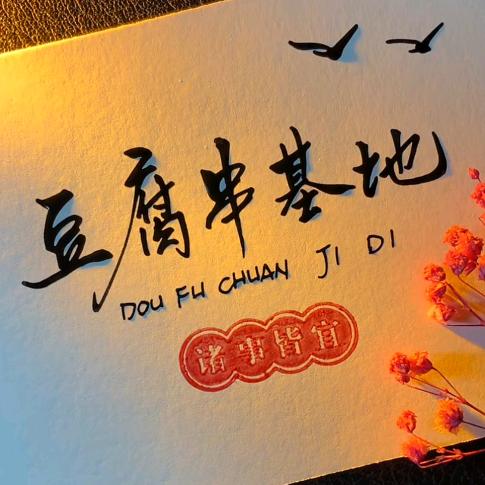 豆腐串基地
DOU FU CHUAN JI DI
诸事皆宜